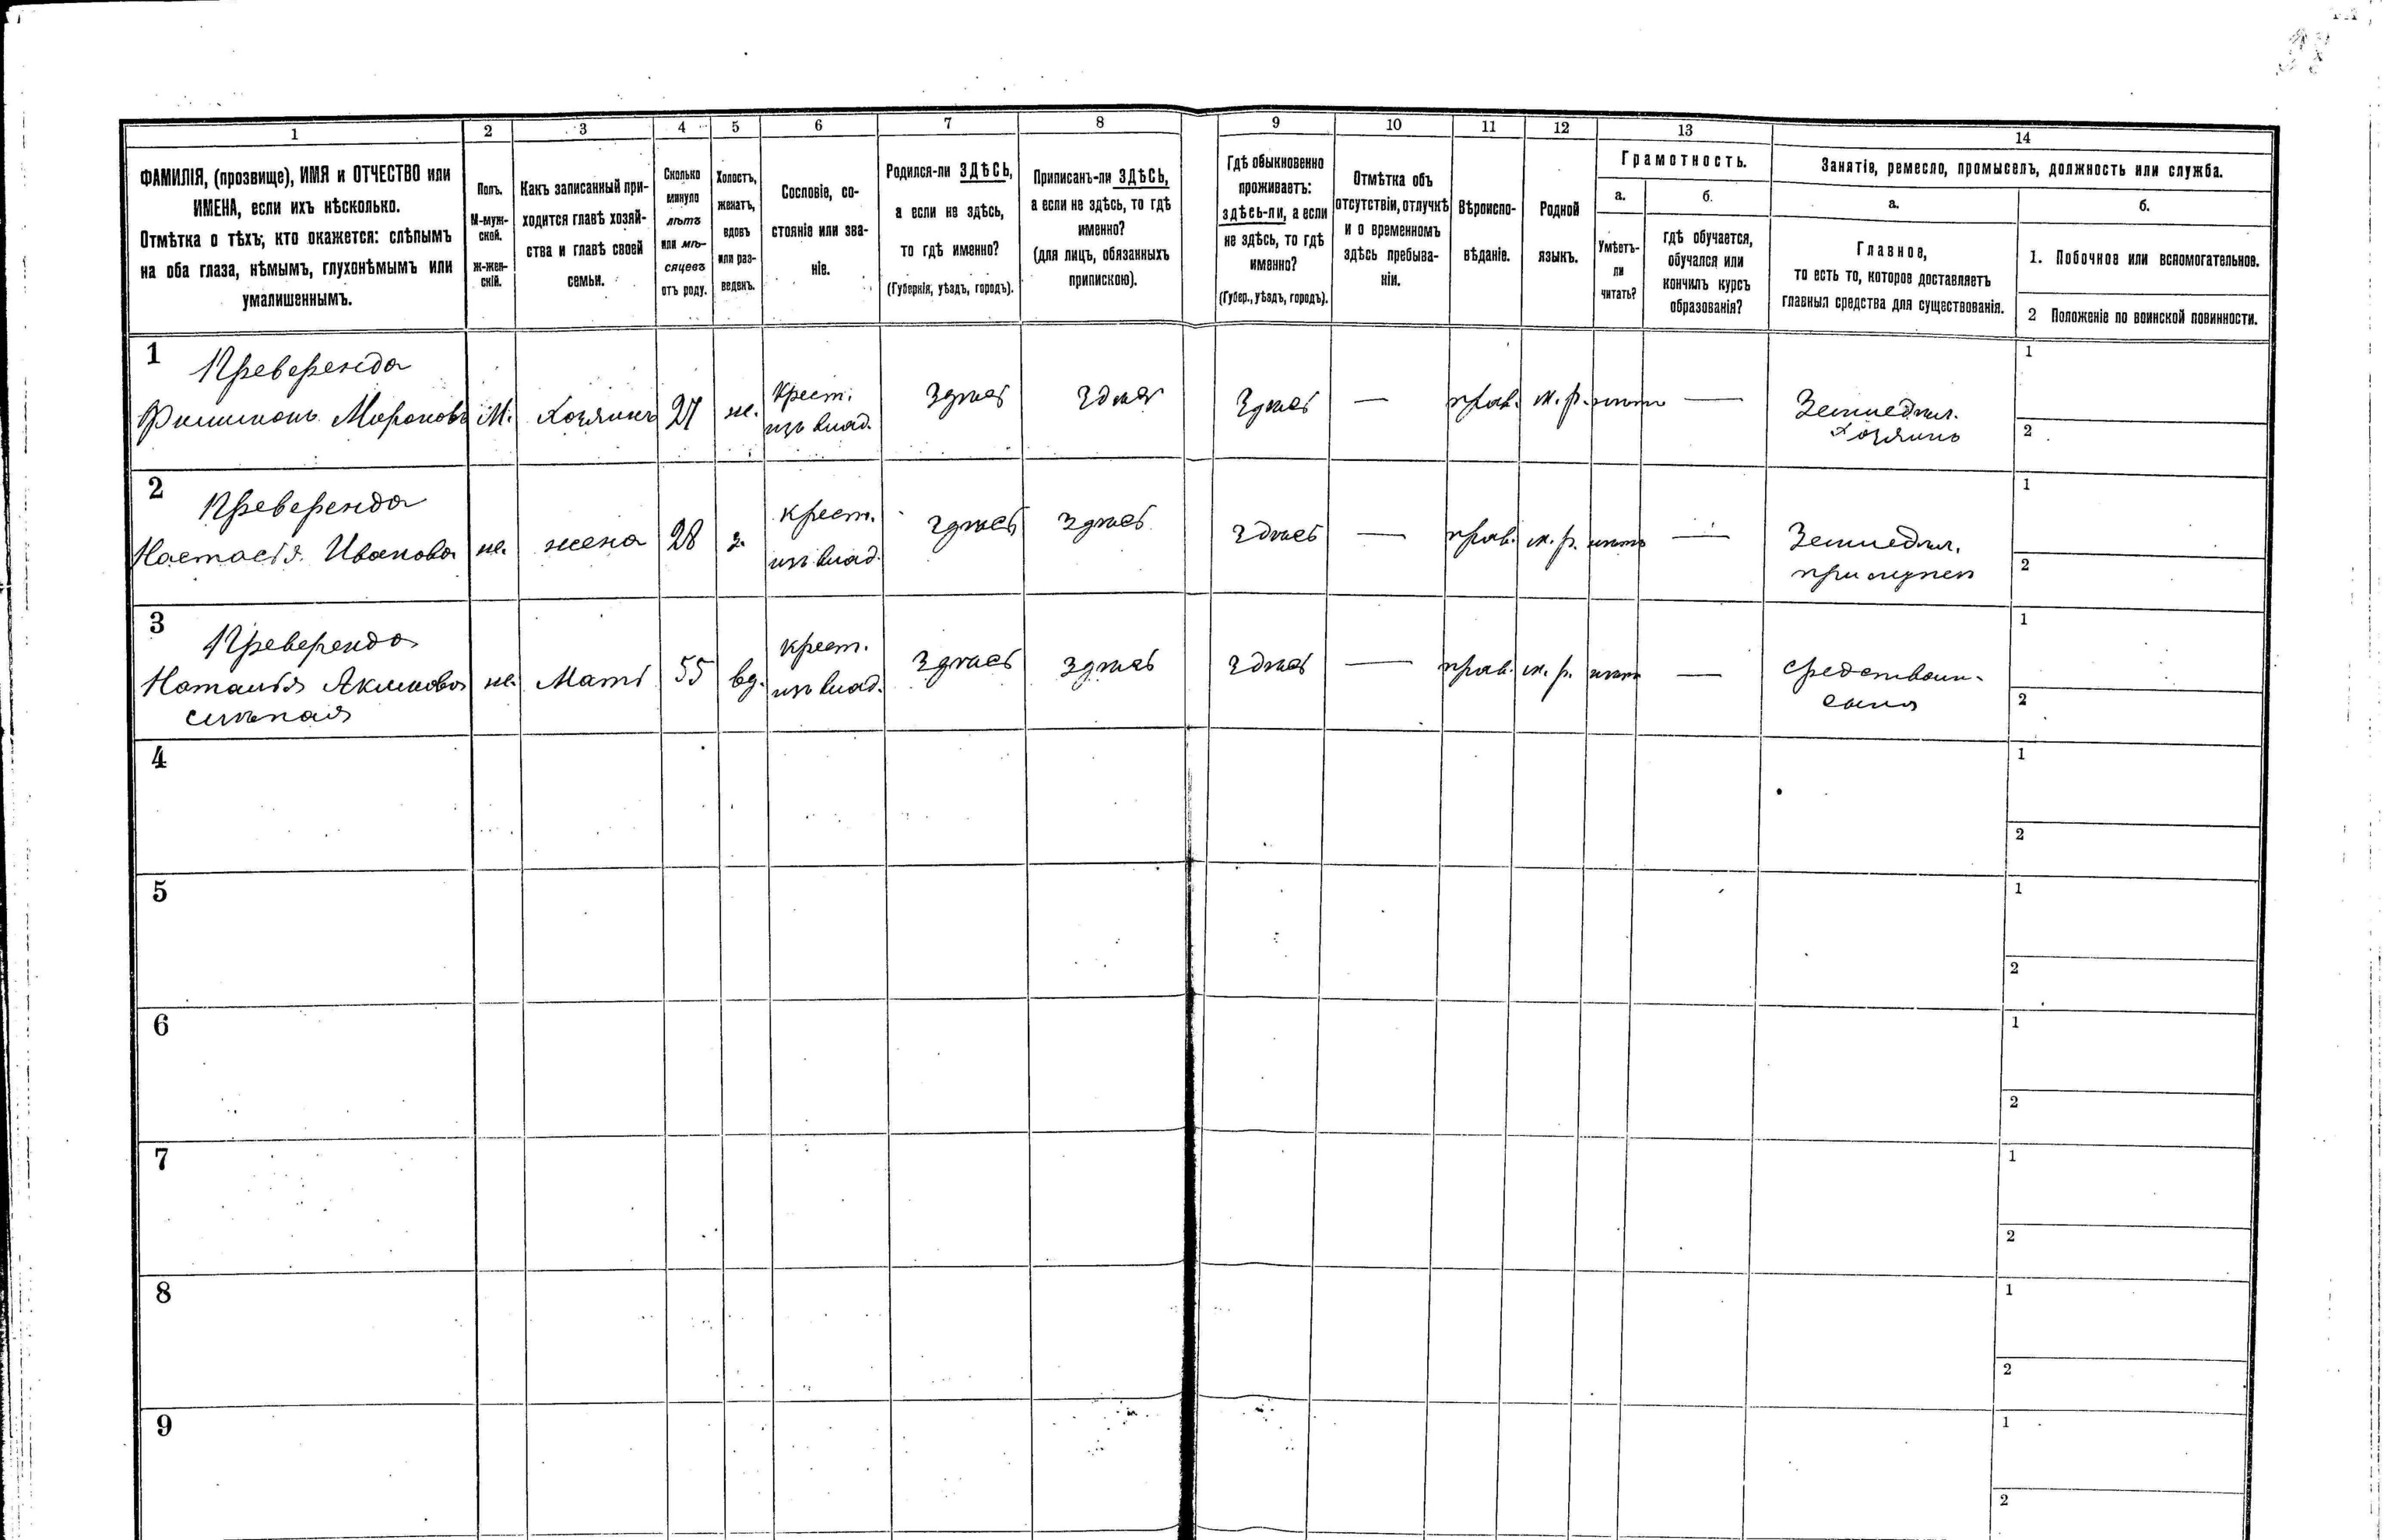 1 2 3 4 5 6 7 8 9 10 11 12 13 14
ФАМИЛІЯ, (прозвище), ИМЯ и ОТЧЕСТВО или
ИМЕНА, если ихъ нѣсколько.
Отмѣтка о тѣхъ, кто окажется: слѣпымъ
на оба глаза, нѣмымъ, глухонѣмымъ или
умалишеннымъ.
Полъ.
М-муж-
ской.
Ж-жен-
скій.
Какъ записанный при-
ходится главѣ хозяй-
ства и главѣ своей
семьи.
Сколько
минуло
лѣтъ
или мѣ-
сяцевъ
отъ роду.
Холостъ,
женатъ,
вдовъ
или раз-
веденъ.
Сословіе, со-
стояніе или зва-
ніе.
Родился-ли ЗДѢСЬ,
а если не здѣсь,
то гдѣ именно?
(Губернія, уѣздъ, городъ).
Приписанъ-ли ЗДѢСЬ,
а если не здѣсь, то гдѣ
именно?
(для лицъ, обязанныхъ
припискою).
Гдѣ обыкновенно
проживаетъ:
здѣсь-ли, а если
не здѣсь, то гдѣ
именно?
(Губер., уѣздъ, городъ).
Отмѣтка объ
отсутствіи, отлучкѣ
и о временномъ
здѣсь пребыва-
ніи.
Вѣроиспо-
вѣданіе.
Родной
языкъ.
Грамотность.
а.
Умѣетъ-
ли
читать?
б.
гдѣ обучается,
обучался или
кончилъ курсъ
образованія?
Занятіе, ремесло, промыселъ, должность или служба.
а.
Главное,
то есть то, которое доставляетъ
главныя средства для существованія.
б.
1. Побочное или вспомогательное.
2 Положеніе по воинской повинности.
1
Преверенда
Филимонъ Мироновъ М. Хозяинъ 27 ж.
Крест.
изъ влад.
Здѣсь Здѣсь Здѣсь — прав. м. р. нѣтъ —
Земледѣл.
Хозяинъ
1
2
2
Преверенда
Настасія Иванова ж. жена 28 з.
Крест.
изъ влад.
здѣсь здѣсь здѣсь — прав. м. р. нѣтъ —
Земледѣл.
при мужѣ
1
2
3
Преверенда
Наталія Акимова ж. Мать 55 вд.
слѣпая
крест.
изъ влад.
Здѣсь здѣсь здѣсь — прав. м. р. нѣтъ —
средствами
сына
1
2
4
1
2
5
1
2
6
1
2
7
1
2
8
1
2
9
1
2